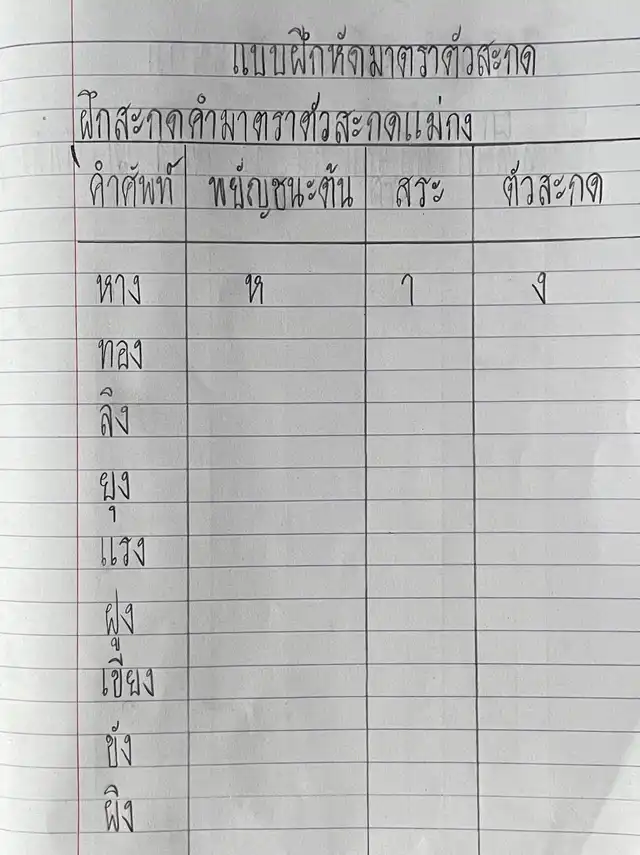 แบบฝึกหัดมาตราตัวสะกด
ฝึกสะกดคำมาตราตัวสะกดแม่กง
คำศัพท์ พยัญชนะต้น สระ ตัวสะกด
หาง ห า ง
ทอง
ลิง
ยุง
แรง
ฝูง
เขียง
ขัง
ผิง